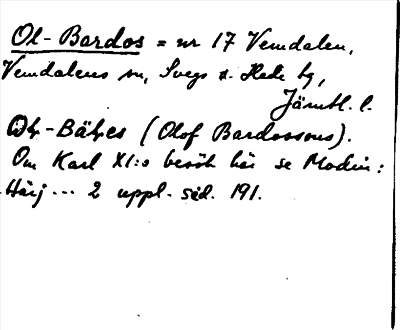 Ol-Bardos = nr 17 Vemdalen,
Vemdalens sn, Svegs o. Hede tg,
Jämtl. l.
-Bä
es (Olof Bardossons).
Om Karl XI:s besök här se Modin:
Härj... 2 uppl. sid. 191.